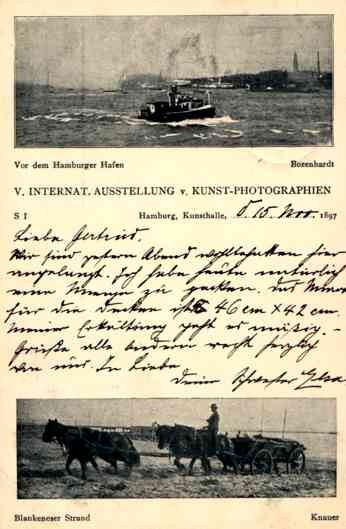 Vor dem Hamburger Hafen Bozenhardt
V. INTERNAT. AUSSTELLUNG v. KUNST-PHOTOGRAPHIEN
S I Hamburg, Kunsthalle, d. 15. Nov. 1897
Liebe Gertrud.
Wir sind gestern Abend wohlbehalten hier
angelangt. Ich habe heute natürlich
eine Menge zu packen. das
für die Decken ist 46 cm x 42 cm.
Meiner Erkältung geht es mäßig. –
Grüße alle Andern recht herzlich
von mir. In Liebe
Deine Schwester Elsa
Blankeneser Strand Knauer